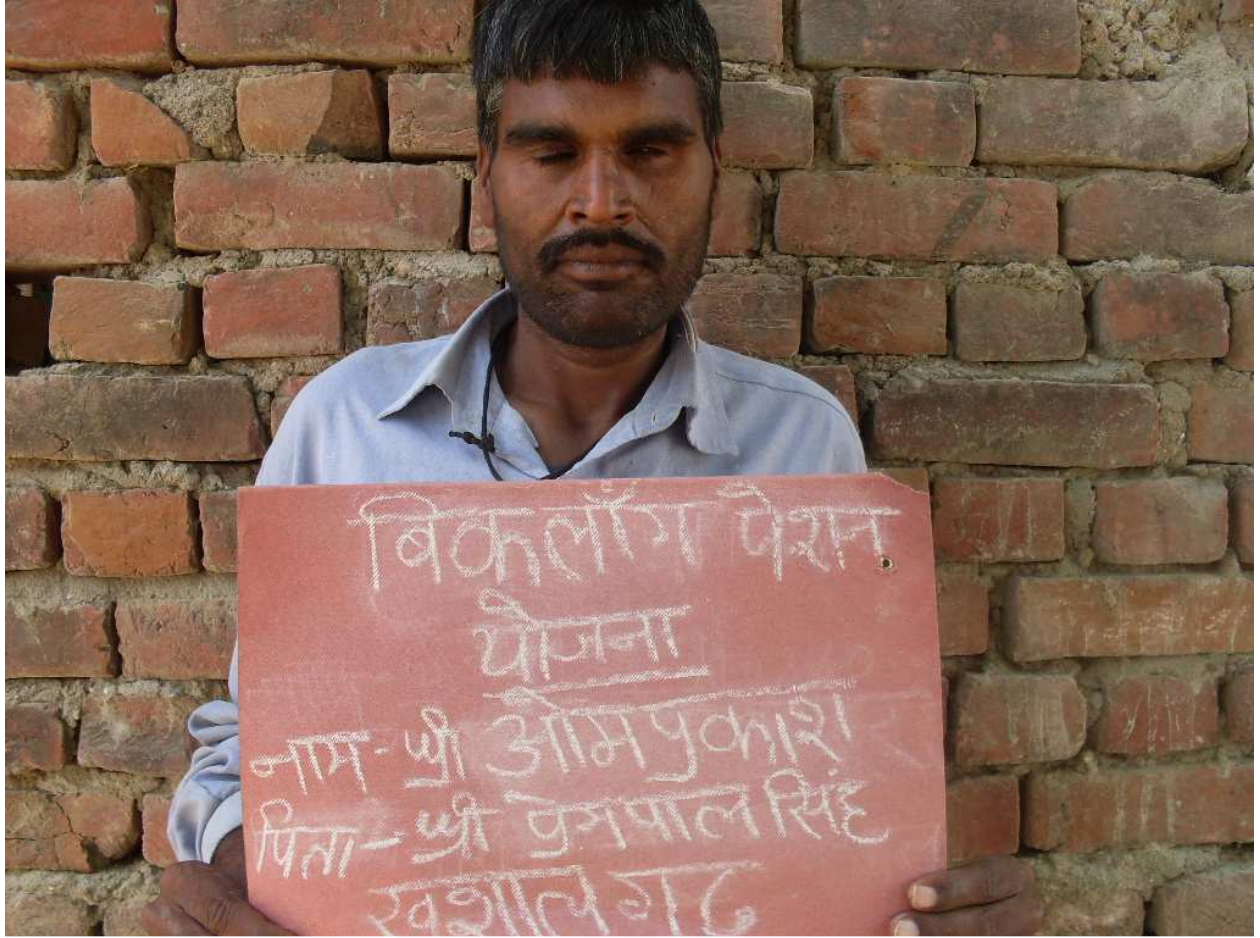 बिकलाँग पेंशन
योजना
नाम - श्री ओम प्रकाश
पिता - श्री प्रेमपाल सिंह
खुशाल गढ